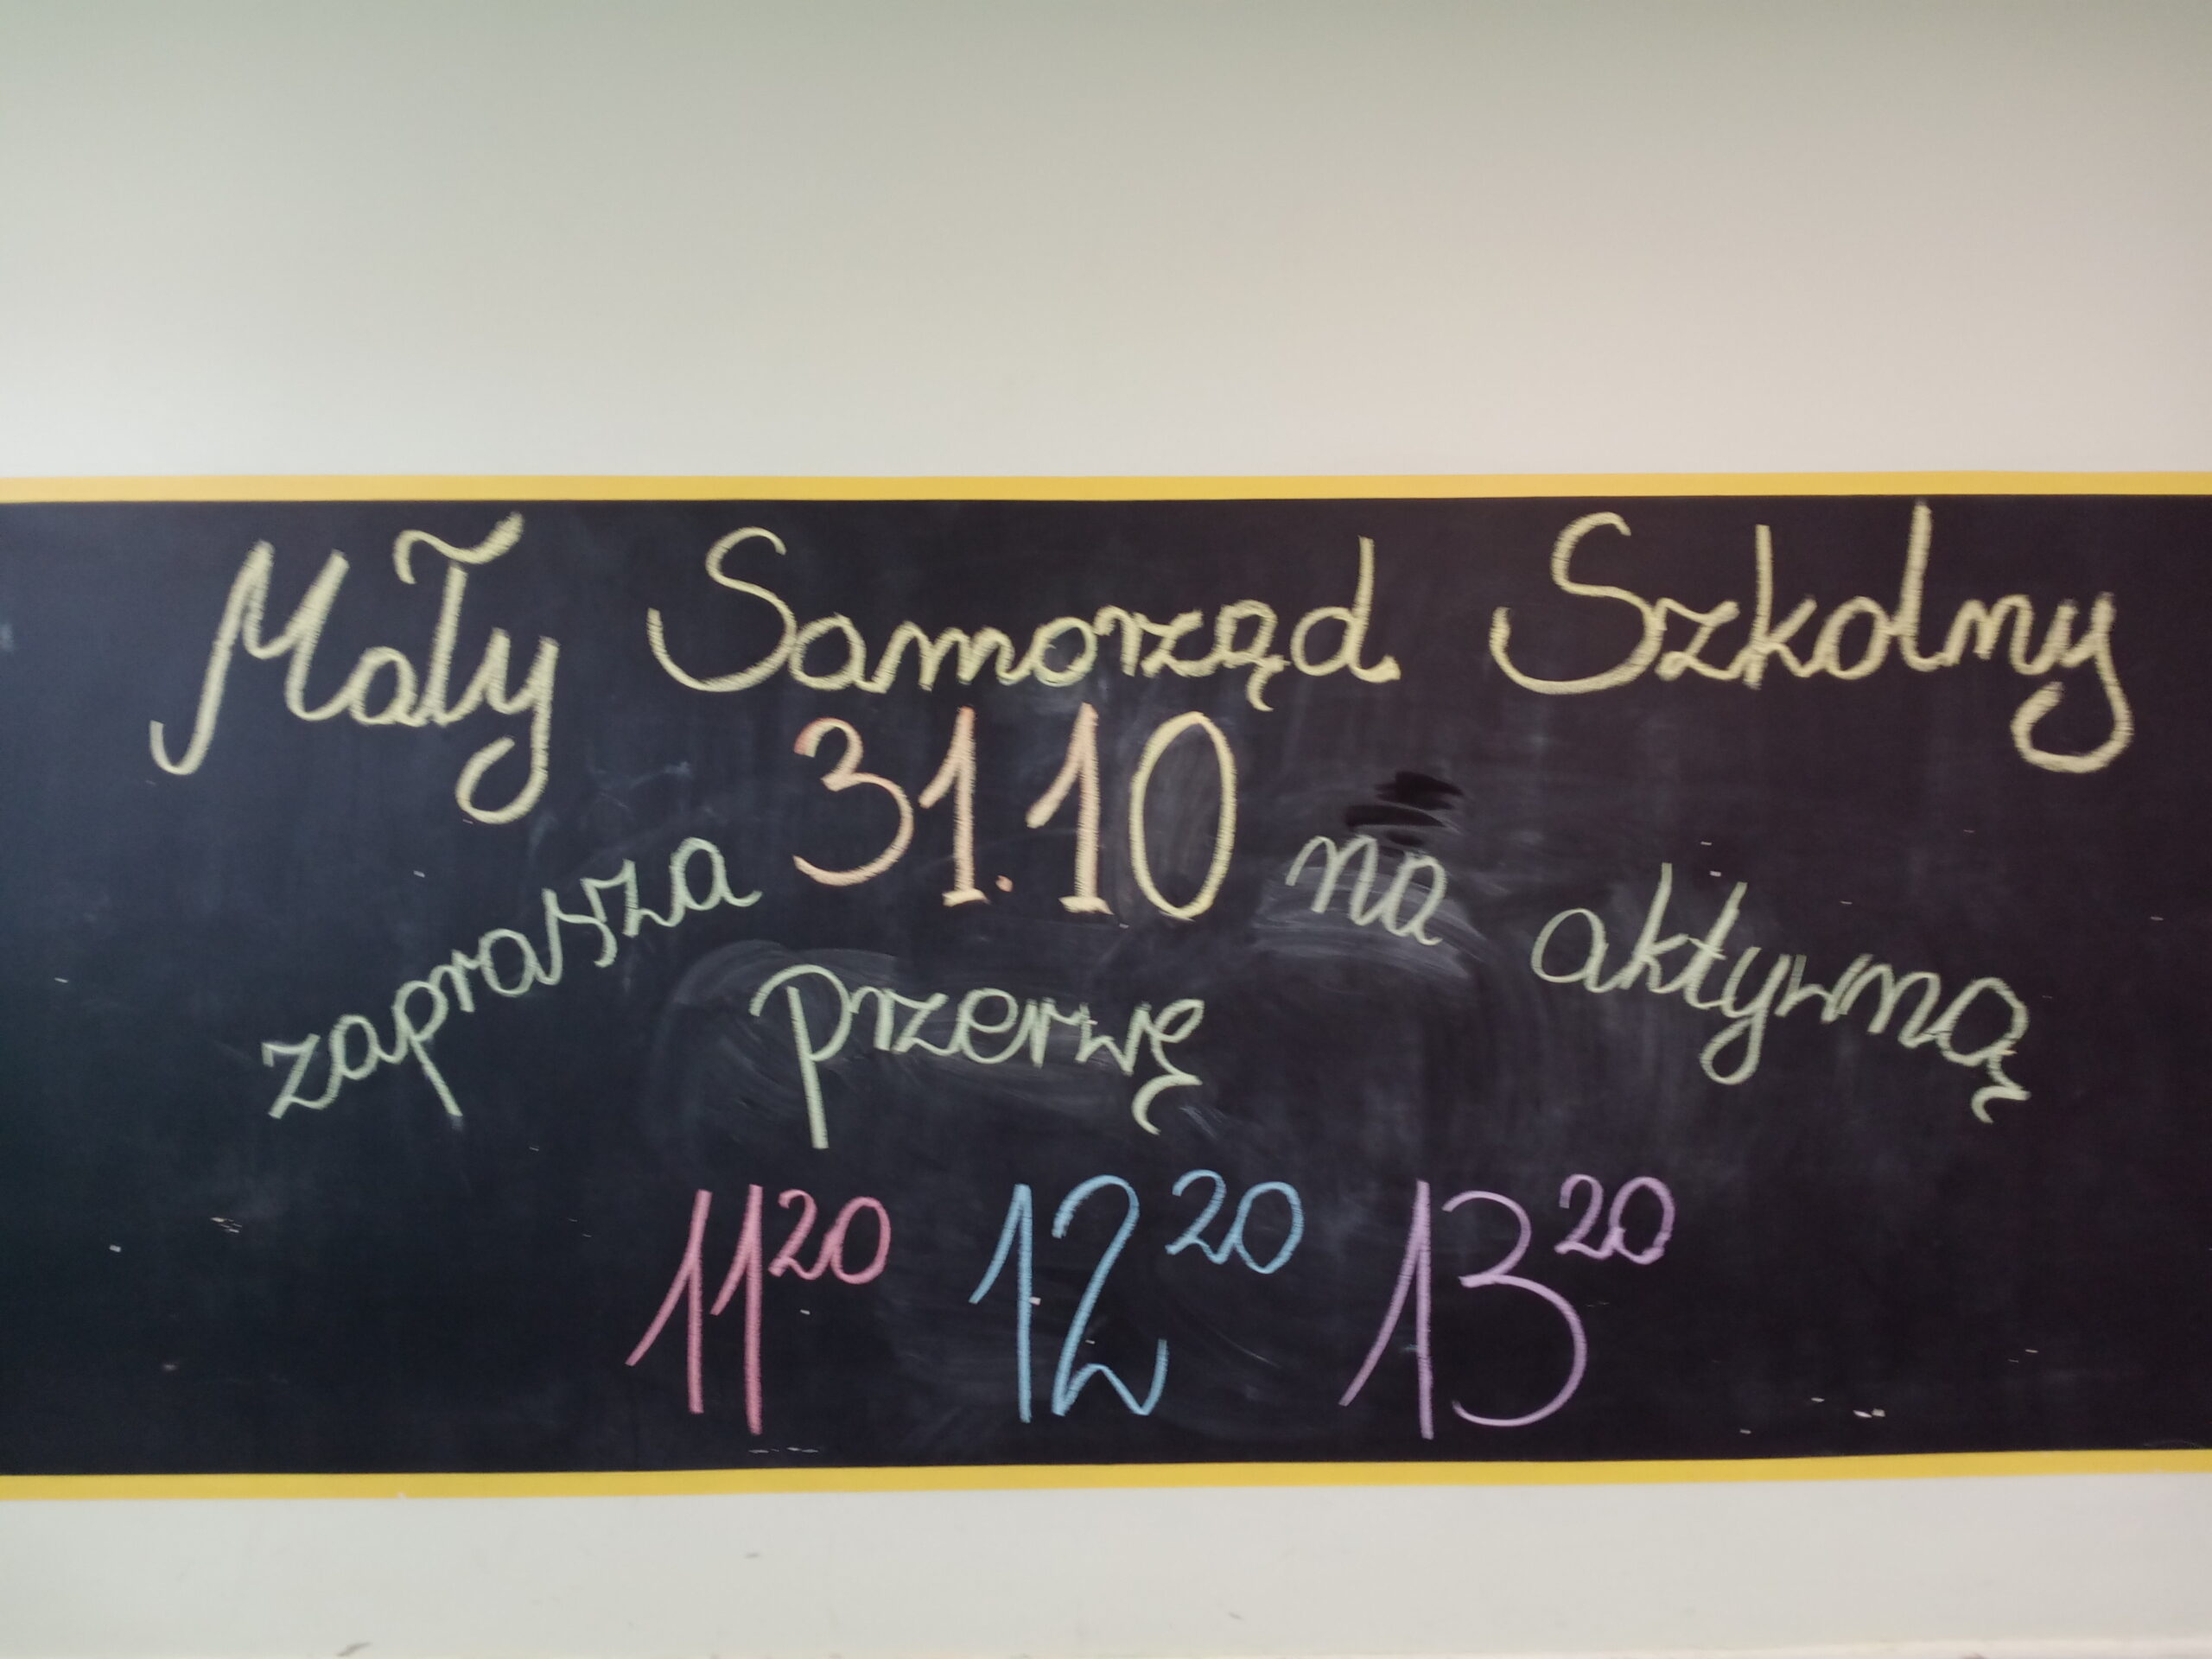 Mały Samorząd Szkolny
zaprasza 31.10 na aktywną
przerwę
11²⁰ 12²⁰ 13²⁰